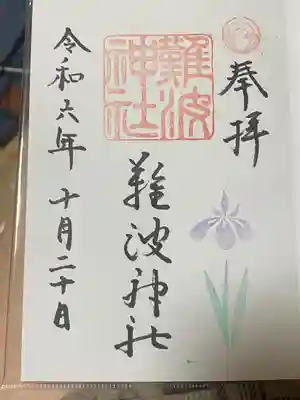 奉拝
難波神社
難波神社
令和六年 十月二十日